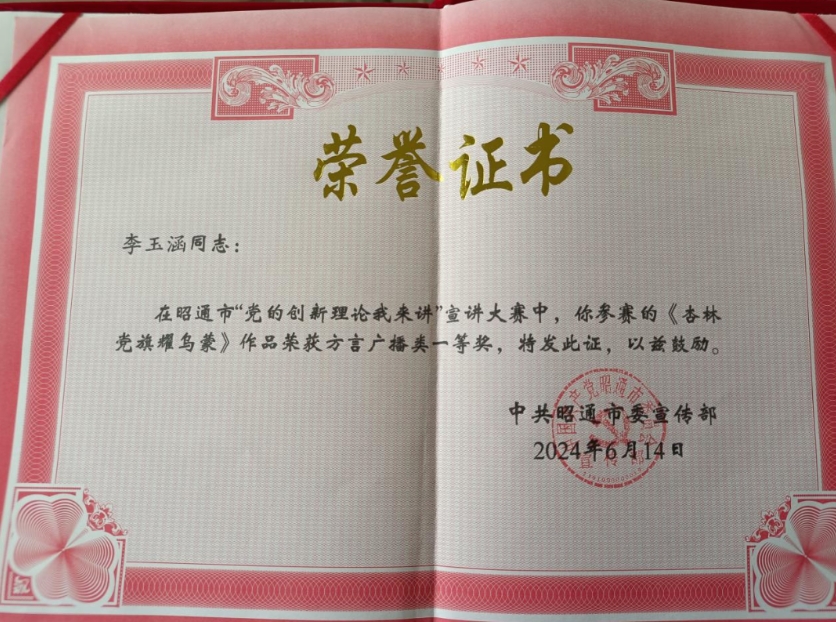 荣誉证书
李玉涵同志：
在昭通市“党的创新理论我来讲”宣讲大赛中，你参赛的《杏林
党旗耀乌蒙》作品荣获方言广播类一等奖，特发此证，以兹鼓励。
中共昭通市委宣传部
2024年6月14日